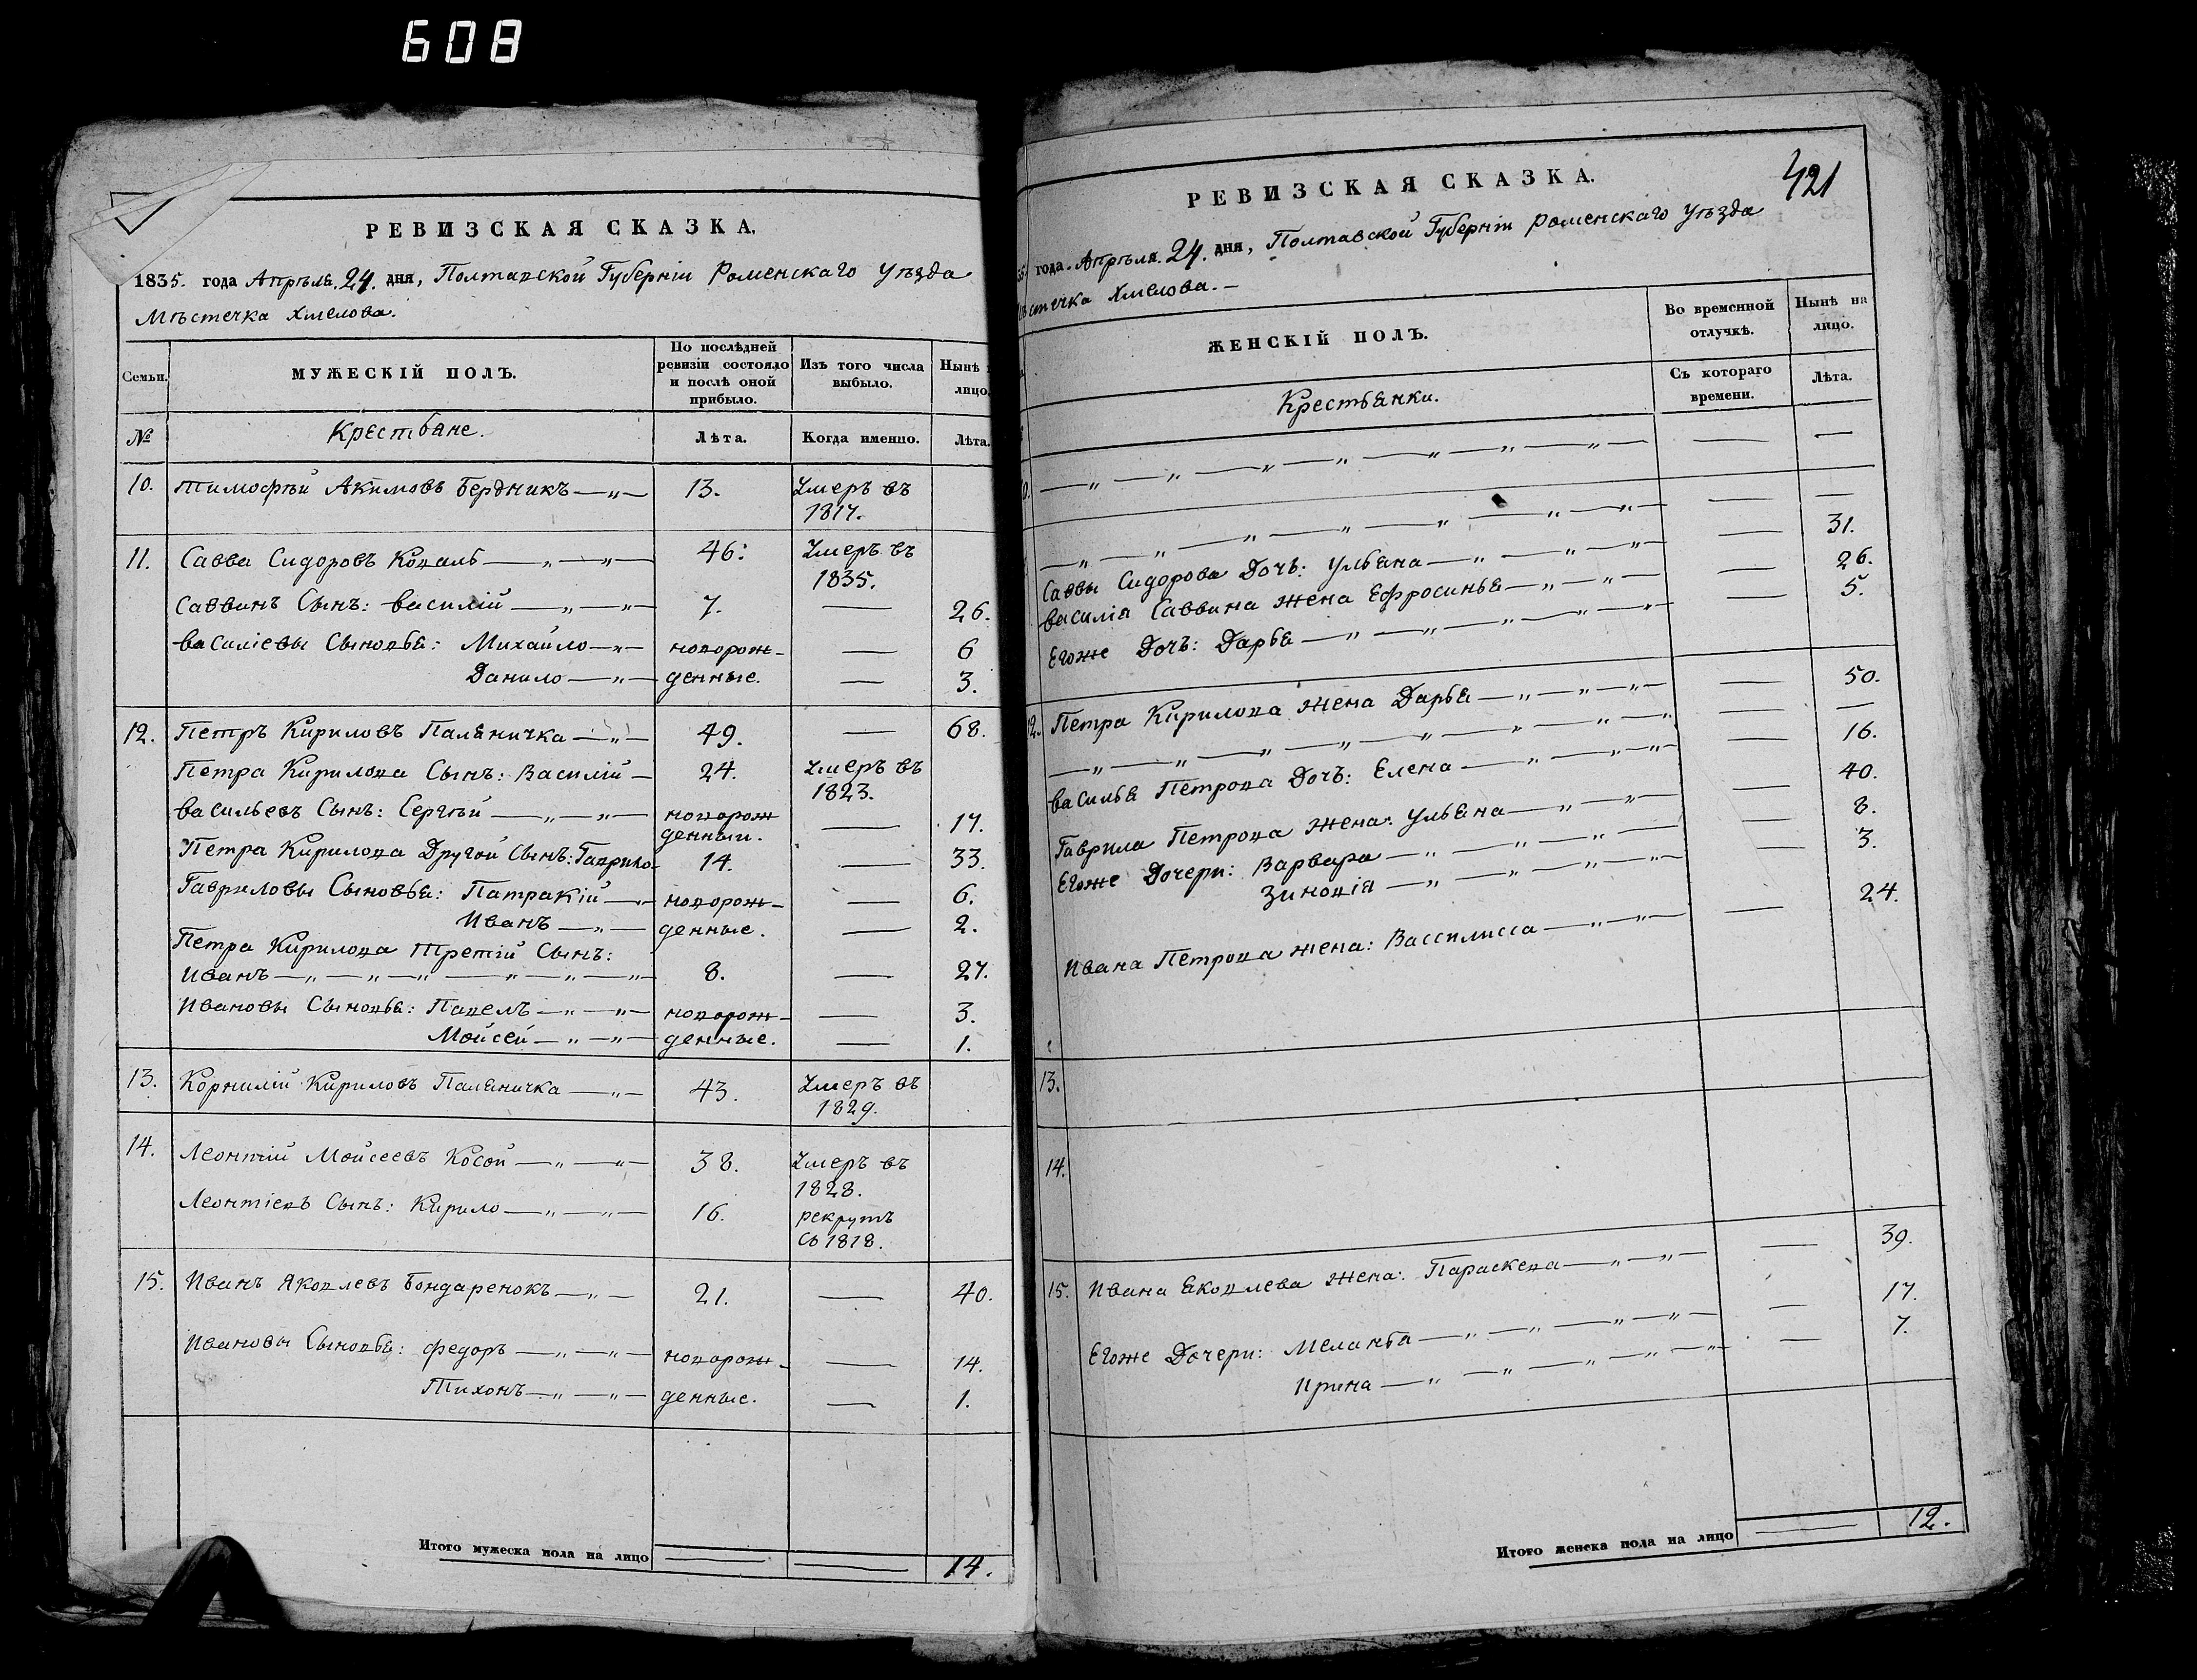 608
РЕВИЗСКАЯ СКАЗКА.
1835. года Апрѣля 24. дня, Полтавской Губерніи Роменскаго уѣзда
Мѣстечка Хмелова.
Семьи.
МУЖЕСКІЙ ПОЛЪ.
По послѣдней ревизіи состояло и послѣ оной прибыло.
Изъ того числа выбыло.
Нынѣ
лицо.
№
Крестьяне.
Лѣта.
Когда именно.
Лѣта.
10. Тимофѣй Акимовъ Бердникъ 13. Умеръ въ
1817.
11. Савва Сидоровъ Коваль 46. Умеръ въ
1835.
Саввинъ Сынъ: Василій 7. — 26.
Василіевы Сыновья: Михайло новорож- — 6
Данило денные. — 3.
12. Петръ Кириловъ Паляничка 49. — 68.
Петра Кирилова Сынъ: Василій 24. Умеръ въ
1823.
Васильевъ Сынъ: Сергѣй новорож
денный. — 17.
Петра Кирилова Другой Сынъ: Гаврило 14. — 33.
Гавриловы Сыновья: Патракій новорож- — 6.
Иванъ денные. — 2.
Петра Кирилова Третій Сынъ:
Иванъ 8. — 27.
Ивановы Сыновья: Павелъ новорож- — 3.
Мойсей денные. — 1.
13. Корнилій Кириловъ Паляничка 43. Умеръ въ
1829.
14. Леонтій Мойсеевъ Косой 38. Умеръ въ
1828.
Леонтіевъ Сынъ: Кирило 16. рекрутъ
съ 1818.
15. Иванъ Яковлевъ Бондаренокъ 21. — 40.
Ивановы Сыновья: Федоръ новорож- — 14.
Тихонъ денные. — 1.
Итого мужеска пола на лицо 14.
421
РЕВИЗСКАЯ СКАЗКА.
года Апрѣля 24. дня, Полтавской Губерніи Роменскаго уѣзда
стечка Хмелова.
ЖЕНСКІЙ ПОЛЪ.
Во временной отлучкѣ.
Нынѣ на лицо.
Съ котораго времени.
Лѣта.
Крестьянки.
Саввы Сидорова Дочь: Ульяна — 31.
Василія Саввина жена Ефросинья — 26.
Егоже Дочь: Дарья — 5.
12. Петра Кирилова жена Дарья — 50.
Василья Петрова Дочь: Елена — 16.
Гаврила Петрова жена: Ульяна — 40.
Егоже Дочери: Варвара — 8.
Зиновія — 3.
Ивана Петрова жена: Вассилисса — 24.
13.
14.
15. Ивана Яковлева жена: Параскева — 39.
Егоже Дочери: Меланья — 17.
Ирина — 7.
Итого женска пола на лицо 12.